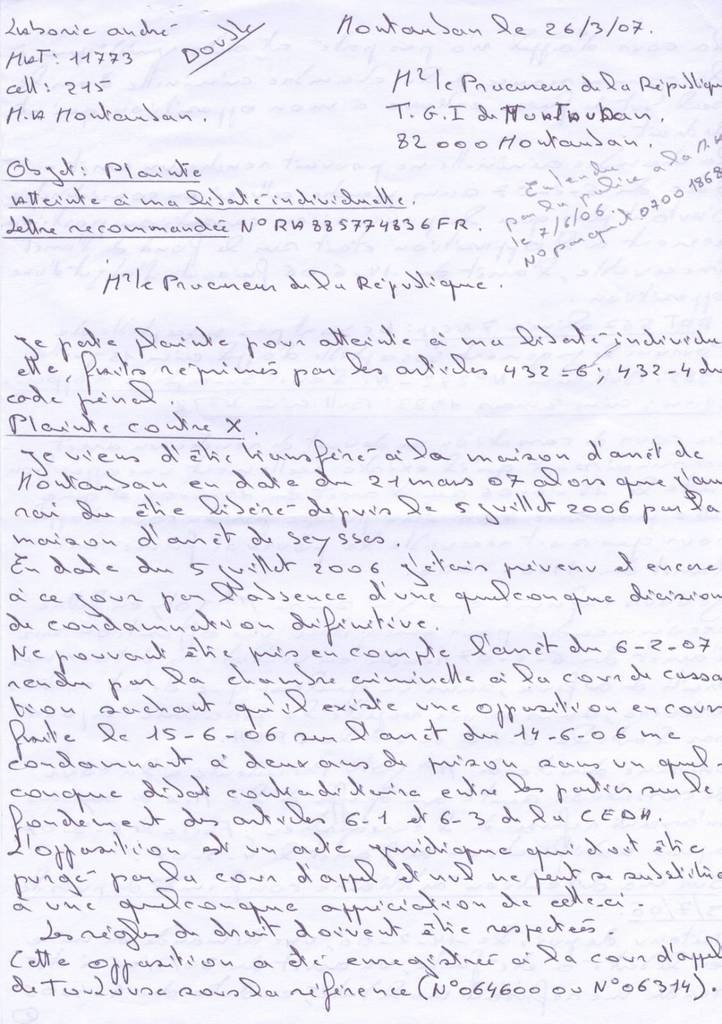 Laborie andré
Mat: 11773
cell: 215
M.A Montauban.
Double
Montauban le 26/3/07.
Mr le Procureur de la République
T.G.I de Montauban.
82000 Montauban.
Objet: Plainte
Atteinte à ma liberté individuelle.
Lettre recommandée N° RA 885774836 FR.
Entendu
par la police à la M.A
le 7/6/06
No parquet 0700 1868
Mr le Procureur de la République.
Je porte plainte pour atteinte à ma liberté individu
elle, faits réprimés par les articles 432-6; 432-4 du
code pénal.
Plainte contre X.
Je viens d'être transféré à la maison d'arrêt de
Montauban en date du 21 mars 07 alors que j'au
rai du être libéré depuis le 5 juillet 2006 par la
maison d'arrêt de Seysses.
En date du 5 juillet 2006 j'étais prévenu et encore
à ce jour par l'absence d'une quelconque décision
de condamnation définitive.
Ne pouvant être pris en compte l'arrêt du 6-2-07
rendu par la chambre criminelle à la cour de cassa
tion sachant qu'il existe une opposition en cours
faite le 15-6-06 sur l'arrêt du 14-6-06 me
condamnant à deux ans de prison sans un quel-
conque débat contradictoire entre les parties sur le
fondement des articles 6-1 et 6-3 de la CEDH.
L'opposition est un acte juridique qui doit être
purgé par la cour d'appel et nul ne peut se substitué
à une quelconque appréciation de celle ci.
Les règles de droit doivent être respectées.
Cette opposition a été enregistrée à la cour d'appel
de Toulouse sous la référence (N°064600 ou N°06314).